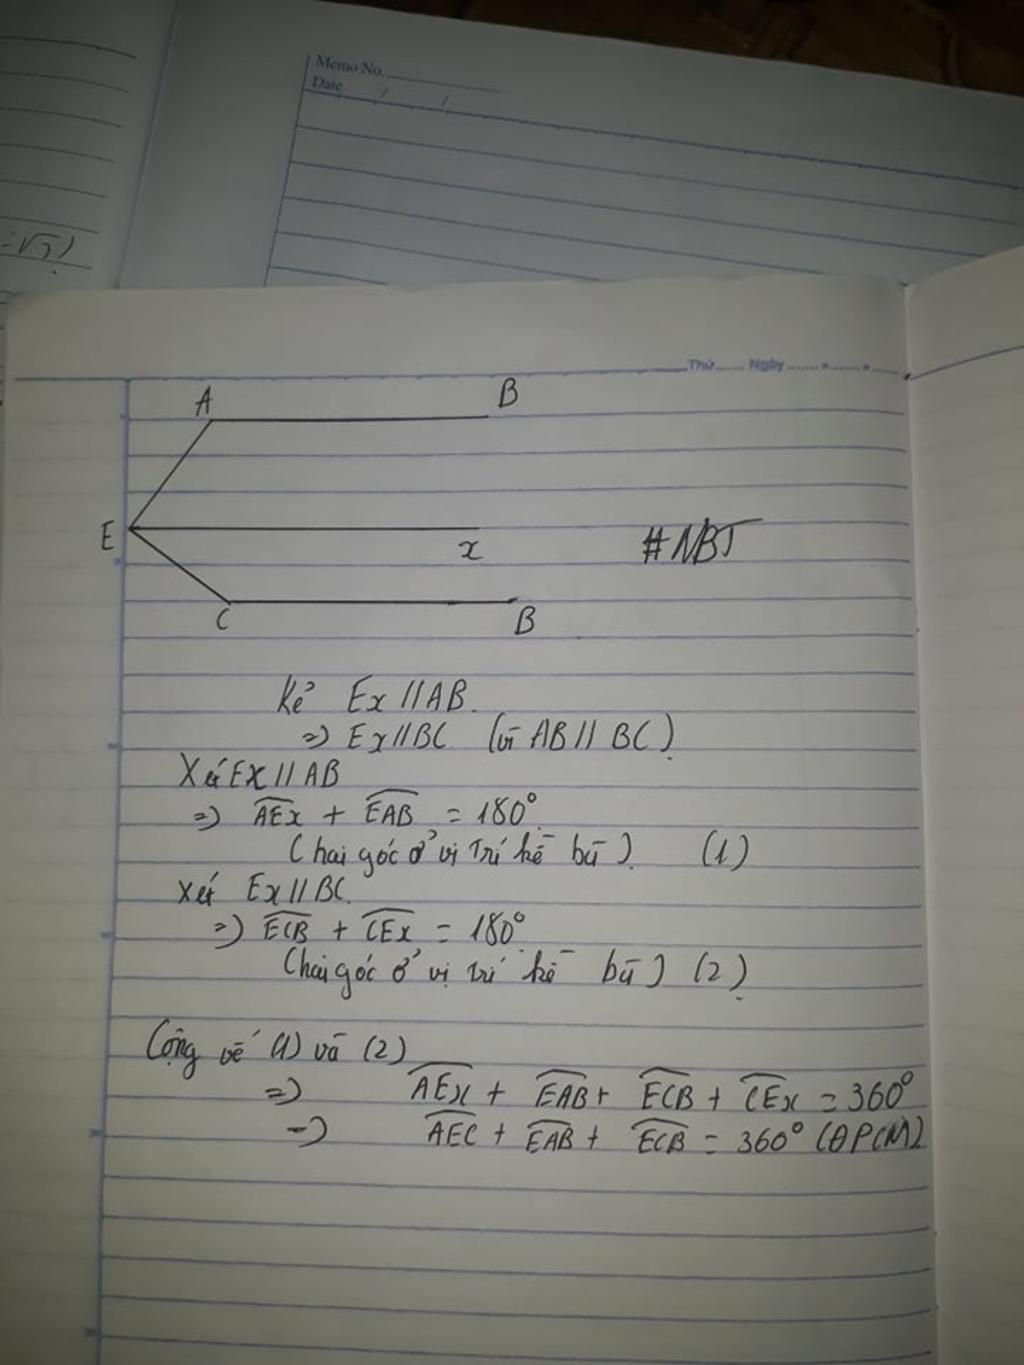 Memo No.
Date / /
=√3!
Thứ...... Ngày
A B
E x #NBT
C B
Kẻ Ex // AB.
=) Ex // BC (vì AB // BC)
Xét Ex // AB
=) AEx + EAB = 180°
(hai góc ở vị trí kề bù) (1)
xét Ex // BC.
=) ECB + CEx = 180°
(hai góc ở vị trí kề bù) (2)
Cộng vế (1) và (2)
=) AEx + EAB + ECB + CEx = 360°
=) AEC + EAB + ECB = 360° (ĐPCM)